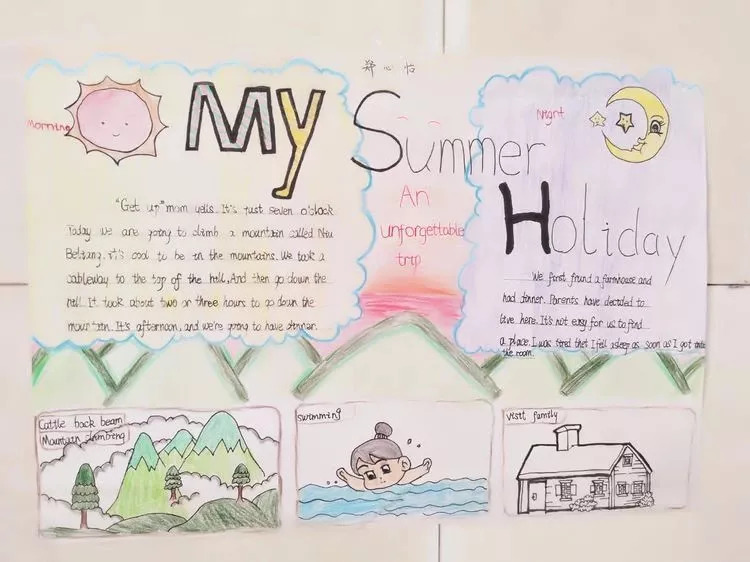 郑心怡
Morning
My Summer
Holiday
Night
An
unforgettable
trip
"Get up" mom yells. It's just seven o'clock
Today we are going to climb a mountain called Niu
Beiliang. it's cool to be in the mountains. We took a
cableway to the top of the hell. And then go down the
hell. It took about two or three hours to go down the
mountain. It's afternoon, and we're going to have dinner.
We first frund a farmhouse and
had dinner. Parents have decided to
live here. It's not easy for us to find
a place. I was tired that I fell asleep as soon as I got
the room.
Cattle back beam
Mountain climbing
swimming
visit family